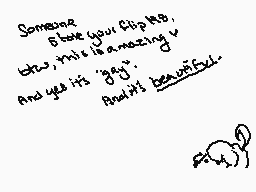 Someone
stole your flipnote,
btw, this is amazing
And yes it's "gay".
And it's beautiful.